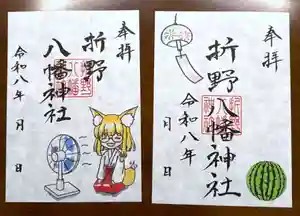 奉拝
折野
八幡神社
令和八年 月 日
奉拝
折野八幡神社
令和八年 月 日